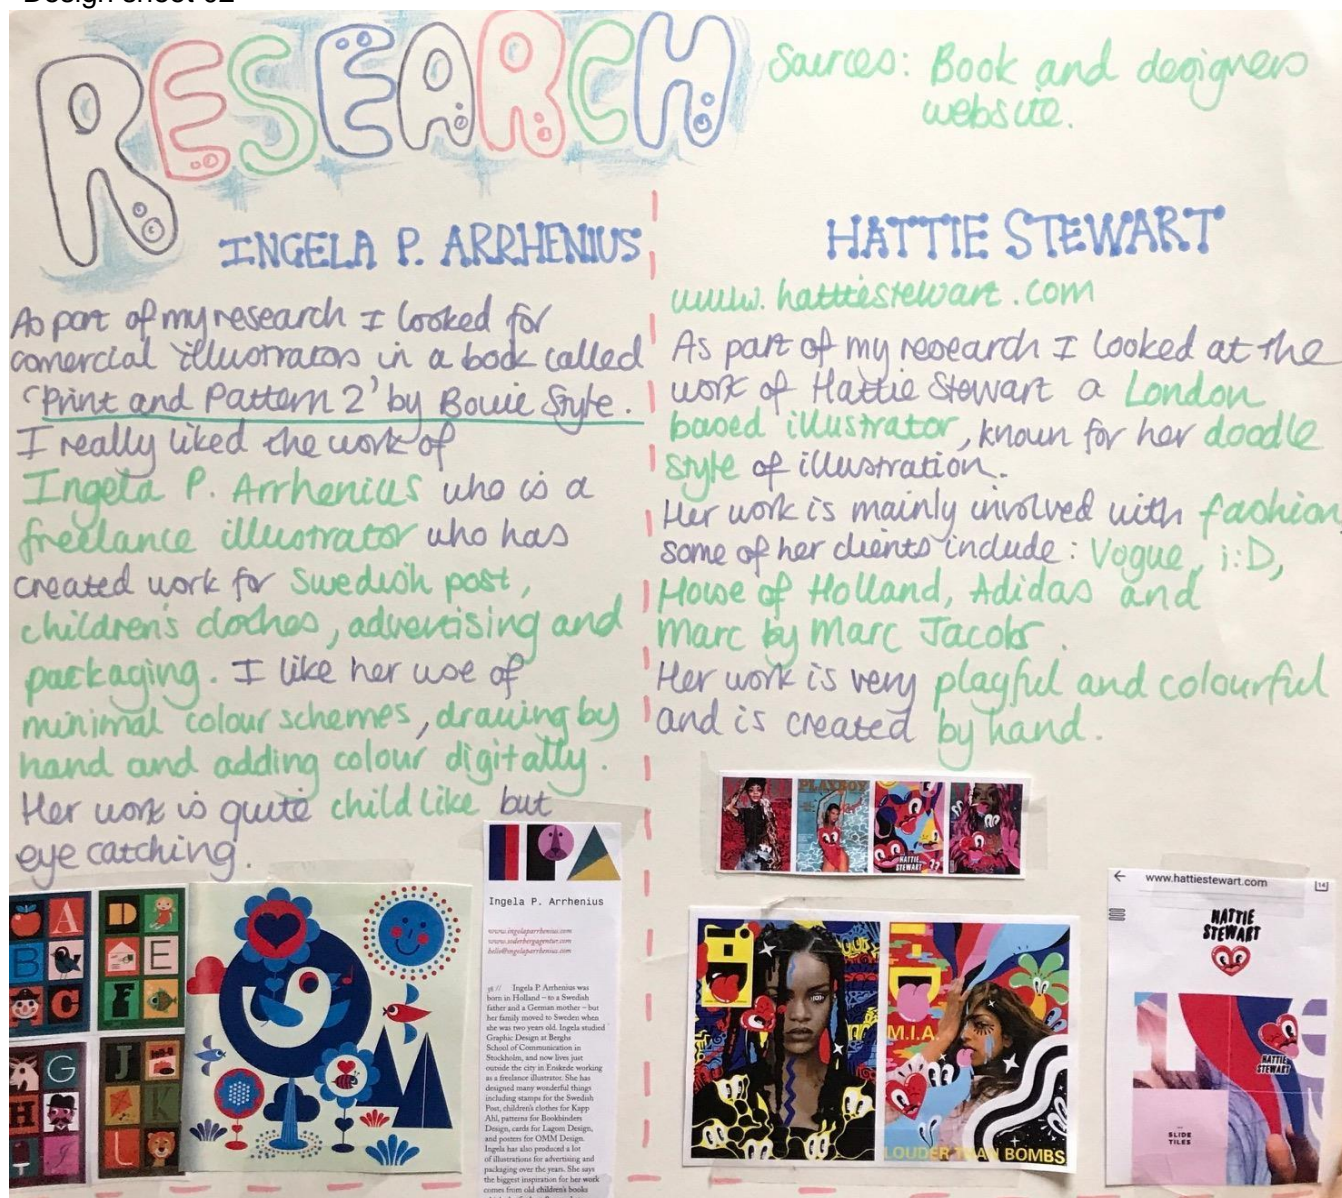 Design sheet 02
RESEARCH
Sources: Book and designers
website.
INGELA P. ARRHENIUS
As part of my research I looked for
comercial illustrators in a book called
'Print and Pattern 2' by Bowie Style.
I really liked the work of
Ingela P. Arrhenius who is a
freelance illustrator who has
created work for Swedish post,
children's clothes, advertising and
packaging. I like her use of
minimal colour schemes, drawing by
hand and adding colour digitally.
Her work is quite child like but
eye catching.
A
D
B
E
C
F
G
J
H
K
L
Ingela P. Arrhenius
www.ingelaparrhenius.com
www.soderbergagentur.com
hello@ingelaparrhenius.com
56 // Ingela P. Arrhenius was
born in Holland – to a Swedish
father and a German mother – but
her family moved to Sweden when
she was two years old. Ingela studied
Graphic Design at Berghs
School of Communication in
Stockholm, and now lives just
outside the city in Enskede working
as a freelance illustrator. She has
designed many wonderful things
including stamps for the Swedish
Post, children's clothes for Kapp
Ahl, patterns for Bookbinders
Design, cards for Lagom Design,
and posters for OMM Design.
Ingela has also produced a lot
of illustrations for advertising and
packaging over the years. She says
the biggest inspiration for her work
comes from old children's books
HATTIE STEWART
www.hattiestewart.com
As part of my research I looked at the
work of Hattie Stewart a London
based illustrator, known for her doodle
style of illustration.
Her work is mainly involved with fashion,
some of her clients include: Vogue, i:D,
House of Holland, Adidas and
Marc by Marc Jacobs.
Her work is very playful and colourful
and is created by hand.
PLAYBOY
HATTIE
STEWART
M.I.A.
LOUDER THAN BOMBS
www.hattiestewart.com
14
HATTIE
STEWART
HATTIE
STEWART
SLIDE
TILES